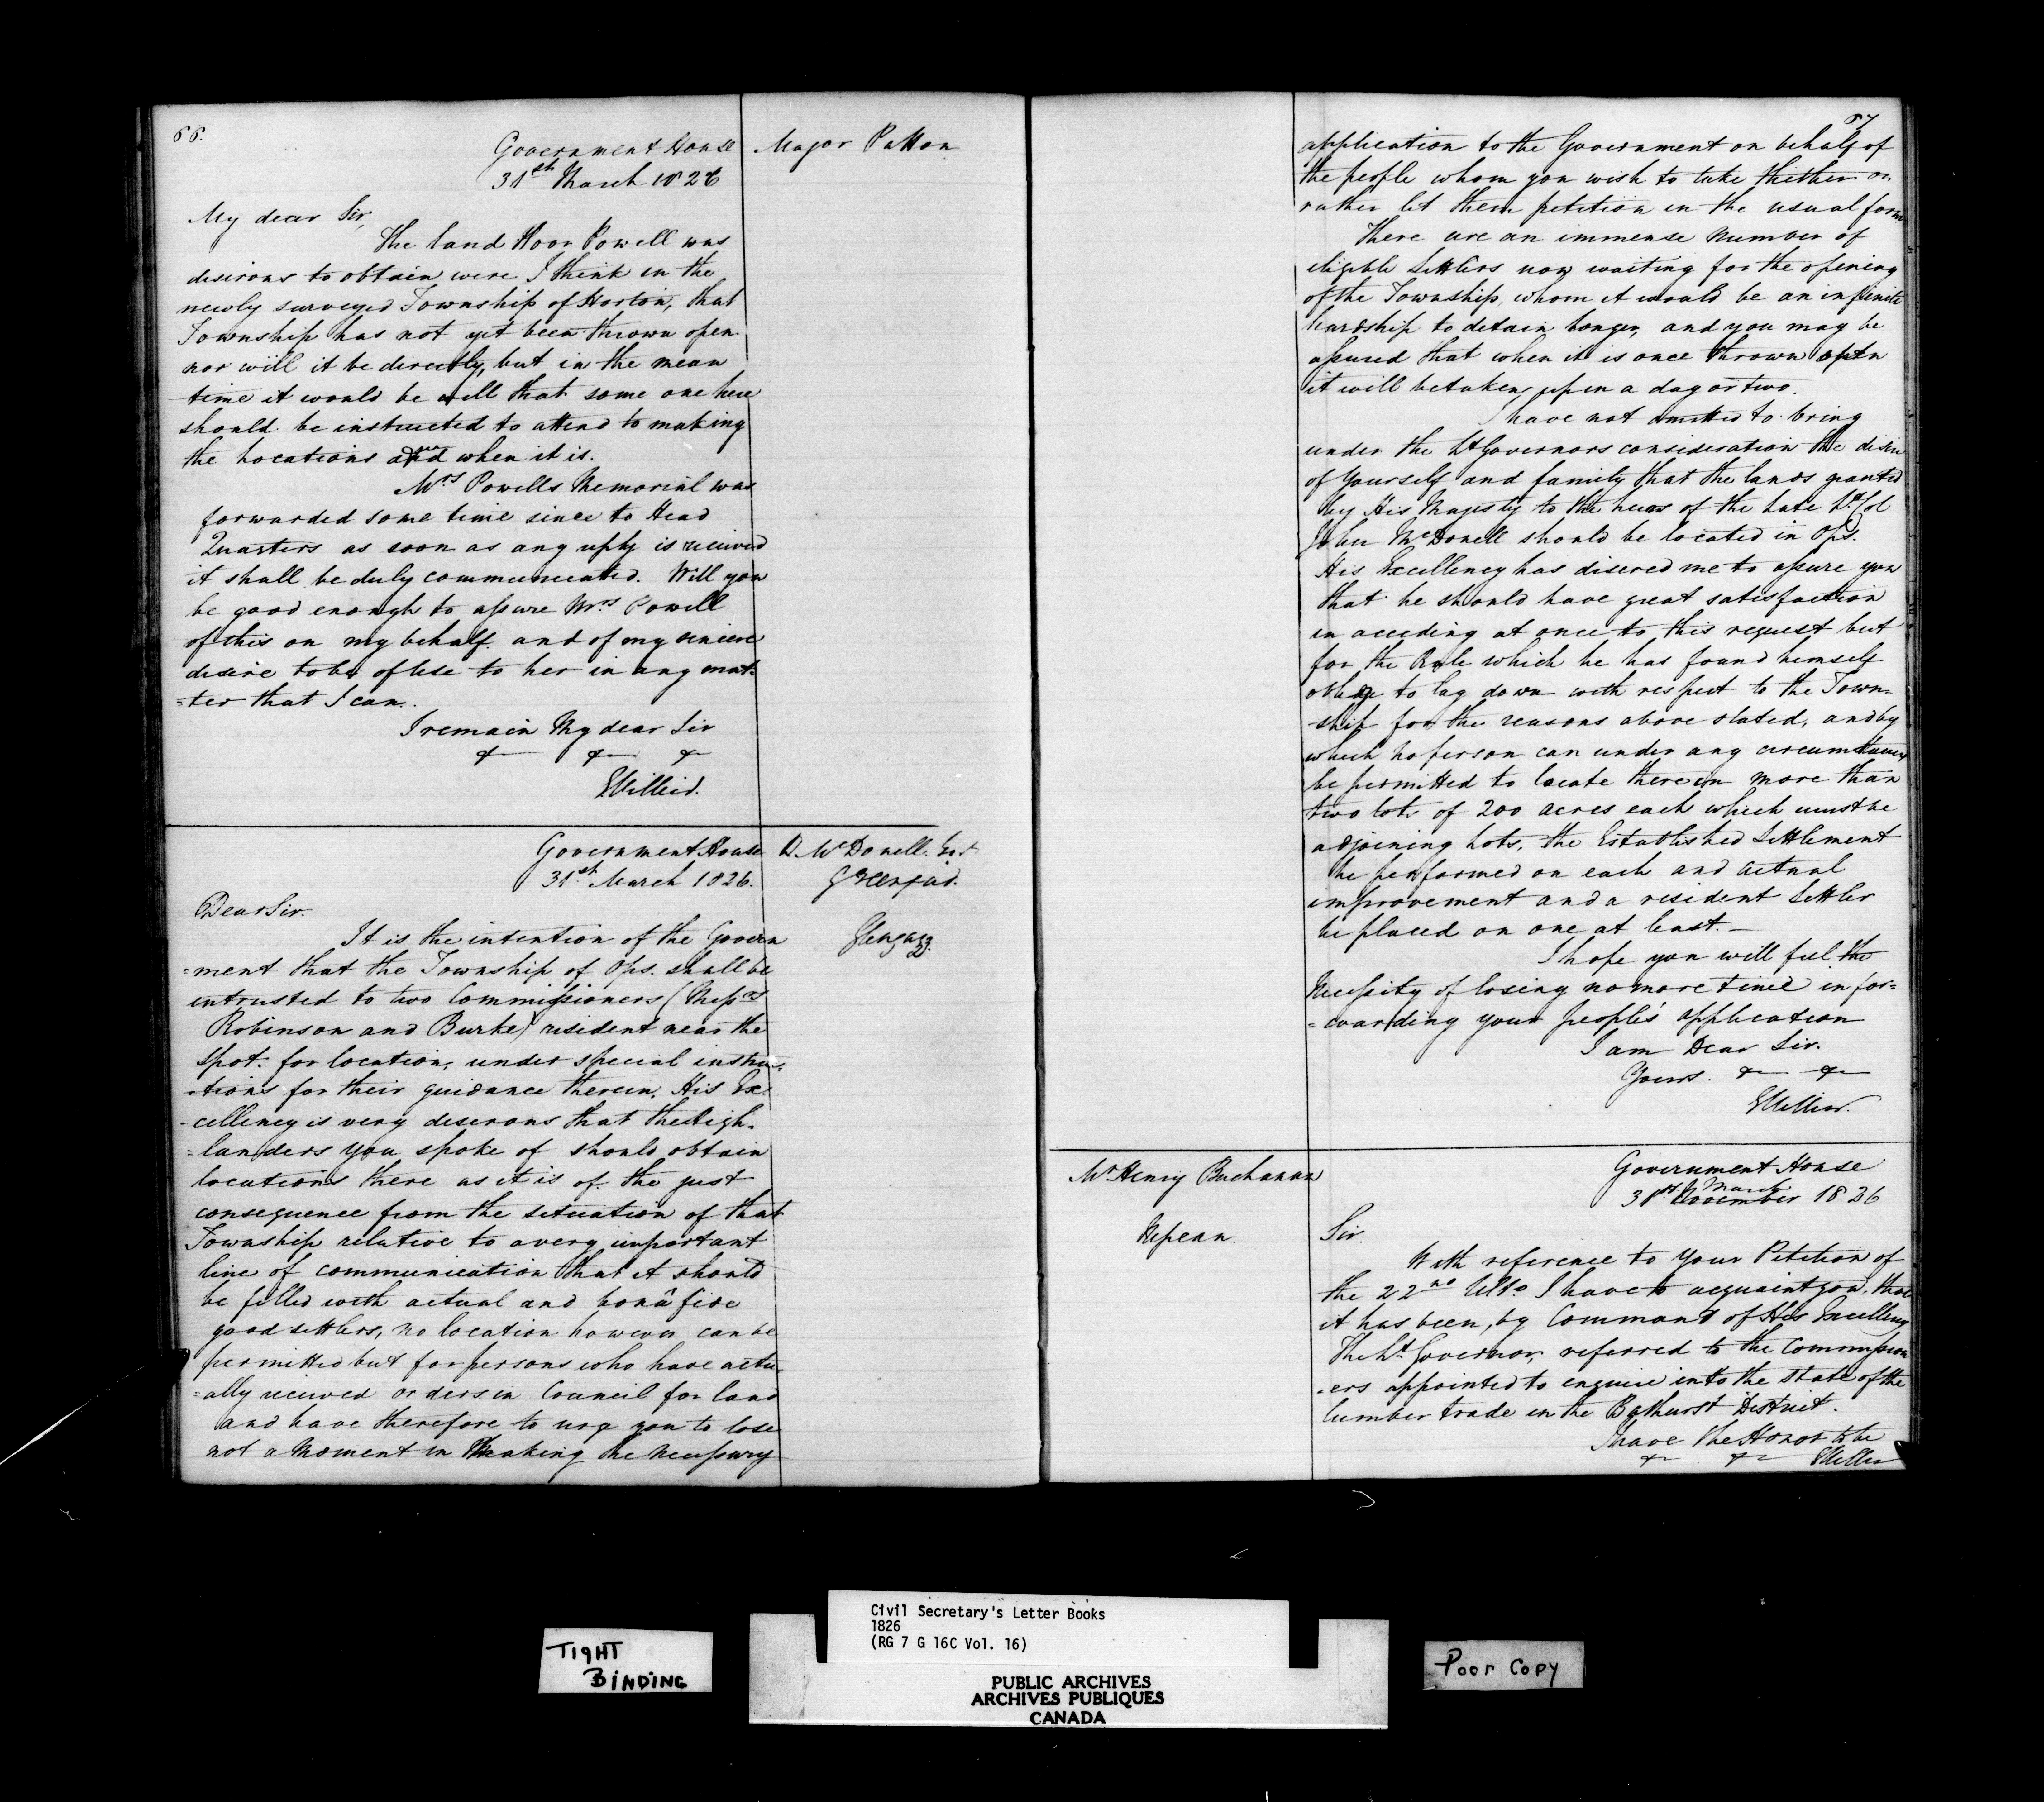 66.
Government House
31st March 1826
Major Patton
My dear Sir,
The land Powell was
desirous to obtain were I think in the
newly surveyed Township of Horton, that
Township has not yet been thrown open
nor will it be directly, but in the mean
time it would be well that some one here
should be instructed to attend to making
the Locations when it is.
Mrs Powells Memorial was
forwarded some time since to Head
Quarters as soon as any reply is received
it shall be duly communicated. Will you
be good enough to assure Mrs Powell
of this on my behalf and of my sincere
desire to be of use to her in any mat-
-ter that I can.
I remain My dear Sir
&c &c &c
GHillier.
Government House
31st March 1826.
D. McDonell. Esqr
Greenfield.
Glengary.
Dear Sir.
It is the intention of the Govern
=ment that the Township of Ops. shall be
intrusted to two Commissioners (Messrs
Robinson and Burke) resident near the
spot for location, under special instruc-
-tions for their guidance therein. His Ex-
-cellency is very desirous that the High-
=landers you spoke of should obtain
locations there as it is of the just
consequence from the situation of that
Township relative to a very important
line of communication that it should
be filled with actual and bonâ fide
good settlers, no location however can be
permitted but for persons who have actu
=ally received orders in Council for land
and have therefore to urge you to lose
not a moment in Making the necessary
67
application to the Government on behalf of
the people whom you wish to take thether or
rather let them petition in the usual form
There are an immense number of
eligible Settlers now waiting for the opening
of the Township, whom it would be an infinite
hardship to detain longer, and you may be
assured that when it is once thrown open
it will be taken up in a day or two.
I have not omitted to bring
under the Lt Governors consideration the desire
of yourself and family that the lands granted
by His Majesty to the heirs of the late Lt Col
John McDonell should be located in Ops.
His Excellency has disered me to assure you
that he should have great satisfaction
in acceding at once to this request but
for the Rule which he has found himself
oblige to lay down with respect to the Town=
-ship for the reasons above stated, and by
which no person can under any circumstances
be permitted to locate therein more than
two lots of 200 acres each which must be
adjoining Lots, the Established Settlement
be performed on each and actual
improvement and a resident Settler
be placed on one at least.—
I hope you will feel the
necessity of losing no more time in for=
=warding your people's application
I am Dear Sir.
Yours. &c &c
GHillier.
Mr Henry Buchanan
Nepean.
Government House
March
31st November 1826
Sir.
With reference to Your Petition of
the 22nd Ulto. I have to acquaint you, that
it has been, by Command of His Excellency
The Lt Governor, referred to the Commission
-ers appointed to enquire into the state of the
lumber trade in the Bathurst District.
I have the Honor to be
&c &c GHillier
TIGHT
BINDING
Civil Secretary's Letter Books
1826
(RG 7 G 16C Vol. 16)
PUBLIC ARCHIVES
ARCHIVES PUBLIQUES
CANADA
Poor Copy